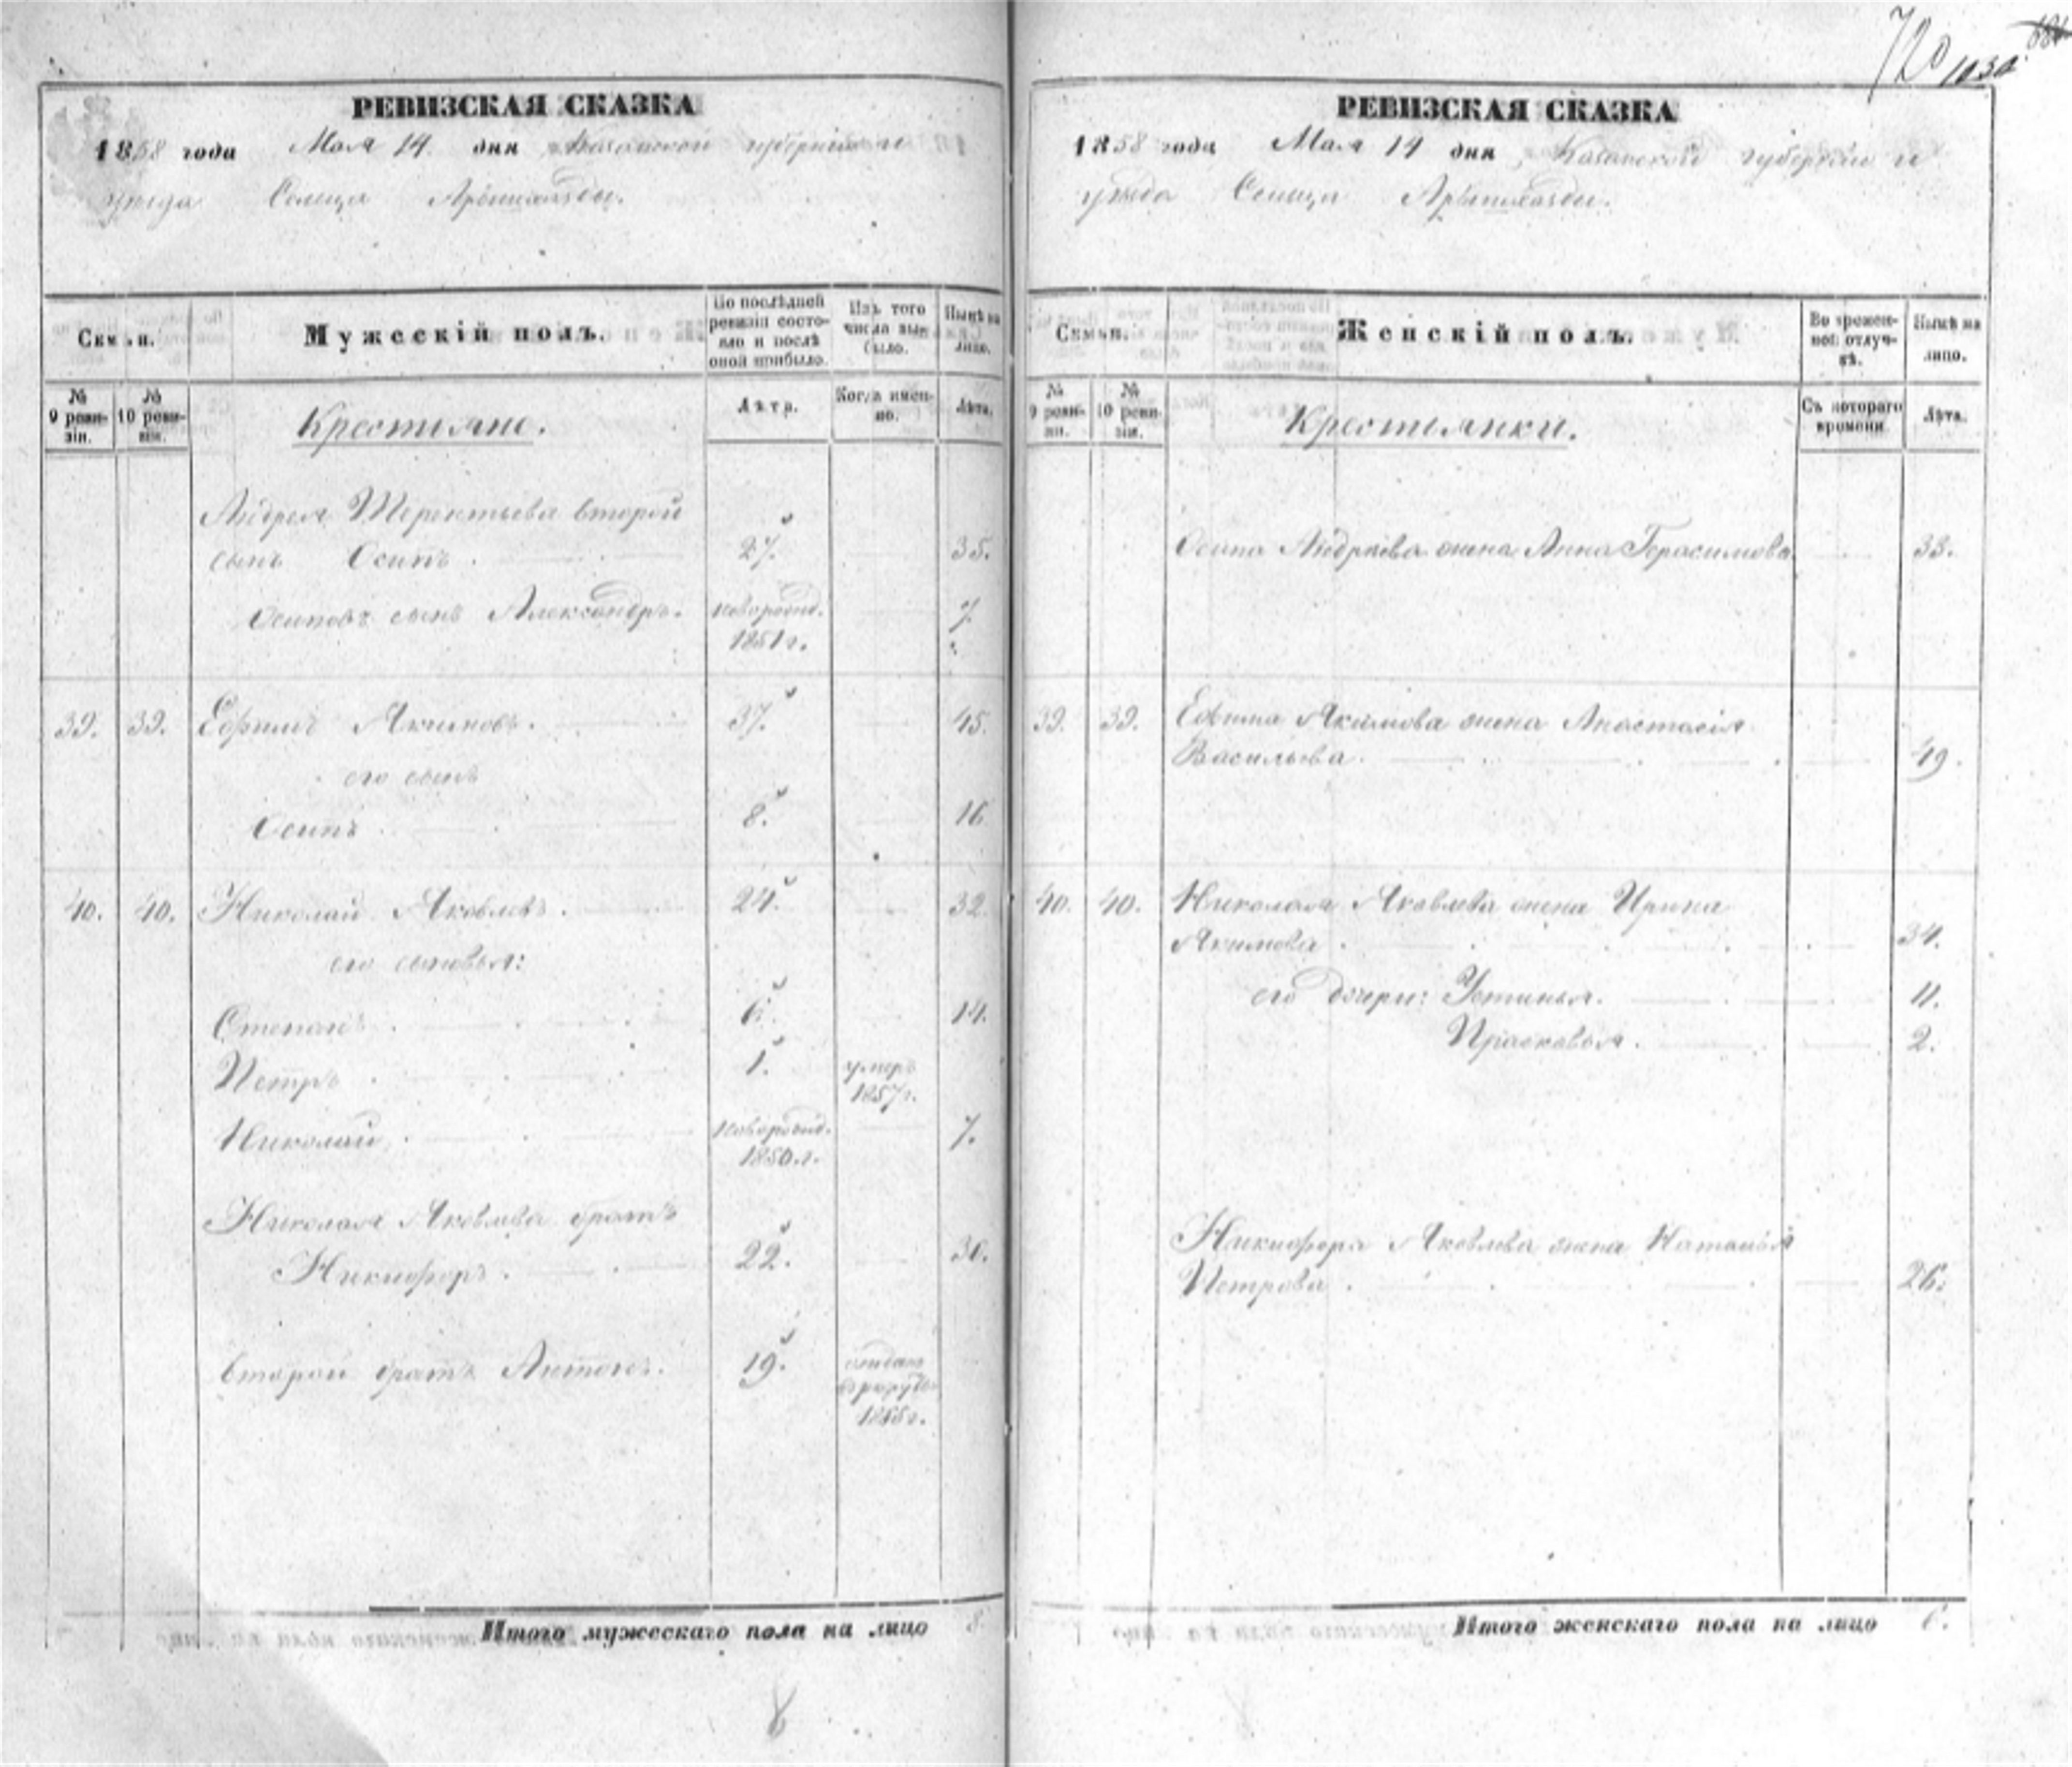 720 1030
РЕВИЗСКАЯ СКАЗКА
1858 года Мая 14 дня Казанской губернии и
уезда Сельца
Семьи.
Мужескій полъ.
По послѣдней ревизіи состояло и послѣ оной прибыло.
Изъ того числа выбыло.
Нынѣ на лицо.
№ 9 ревизіи.
№ 10 ревизіи.
Крестьяне.
Лѣта.
Когда именно.
Лѣта.
Андрея Терентьева второй
сынъ Осипъ. 27. 35.
Осиповъ сынъ Александръ. новорожд. 7.
1851 г.
39. 39. Ефимъ Акимовъ. 37. 45.
его сынъ
Осипъ. 8. 16
40. 40. Николай Яковлевъ. 24. 32.
его сыновья:
Степанъ. 6. 14.
Петръ. 1. умеръ
1857 г.
Николай. новорожд. 7.
1850 г.
Николая Яковлева братъ
Никифоръ. 22. 30.
второй братъ Антонъ. 19. отданъ
в рекруты
Итого мужескаго пола на лицо 8.
8
РЕВИЗСКАЯ СКАЗКА
1858 года Мая 14 дня, Казанской губерніи и
уезда Сельца
Семьи.
Женскій полъ.
Во временной отлучкѣ.
Нынѣ на лицо.
№ 9 ревизіи.
№ 10 ревизіи.
Крестьянки.
Съ котораго времени
Лѣта.
Осипа Андреева жена Анна Герасимова 33.
39. 39. Ефима Акимова жена Анастасія
Васильева. 49.
40. 40. Николая Яковлева жена Ирина
Акимова. 34.
его дочери: Устинья. 11.
Прасковья. 2.
Никифора Яковлева жена Наталья
Петрова. 26.
Итого женскаго пола на лицо 6.